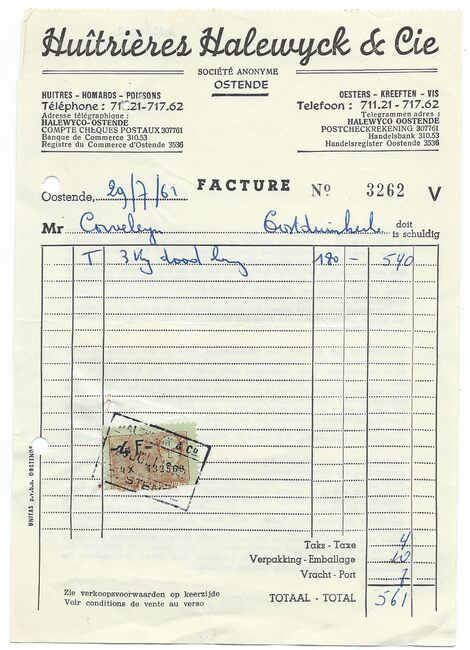 Huîtrières Halewyck & Cie
SOCIÉTÉ ANONYME
OSTENDE
HUITRES - HOMARDS - POISSONS
Téléphone : 711.21-717.62
Adresse télégraphique :
HALEWYCO-OSTENDE
COMPTE CHÈQUES POSTAUX 307761
Banque de Commerce 310.53
Registre du Commerce d'Ostende 3536
OESTERS - KREEFTEN - VIS
Telefoon : 711.21 - 717.62
Telegrammen adres :
HALEWYCO OOSTENDE
POSTCHECKREKENING 307761
Handelsbank 310.53
Handelsregister Oostende 3536
Oostende, 29/7/61 FACTURE No 3262 V
Mr Corveleyn Oostduinkerke doit
is schuldig
T 3 Kg 180 - 540
4 F-
& Co
Taks - Taxe 4
Verpakking - Emballage 10
Vracht - Port 7
TOTAAL - TOTAL 561
Zie verkoopsvoorwaarden op keerzijde
Voir conditions de vente au verso
UNITAS p.v.b.a. OOSTENDE